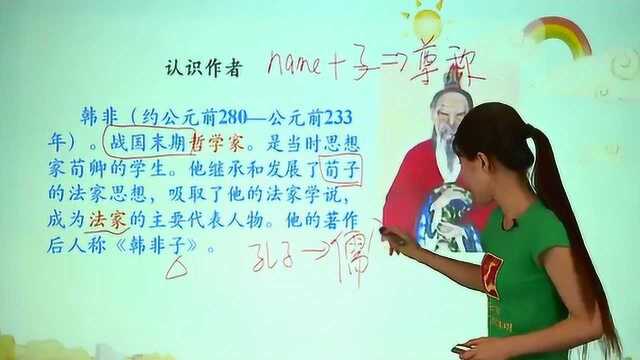 认识作者 name+子⇒尊称
韩非（约公元前280—公元前233
年）。战国末期哲学家。是当时思想
家荀卿的学生。他继承和发展了荀子
的法家思想，吸取了他的法家学说，
成为法家的主要代表人物。他的著作
后人称《韩非子》。
孔子→儒